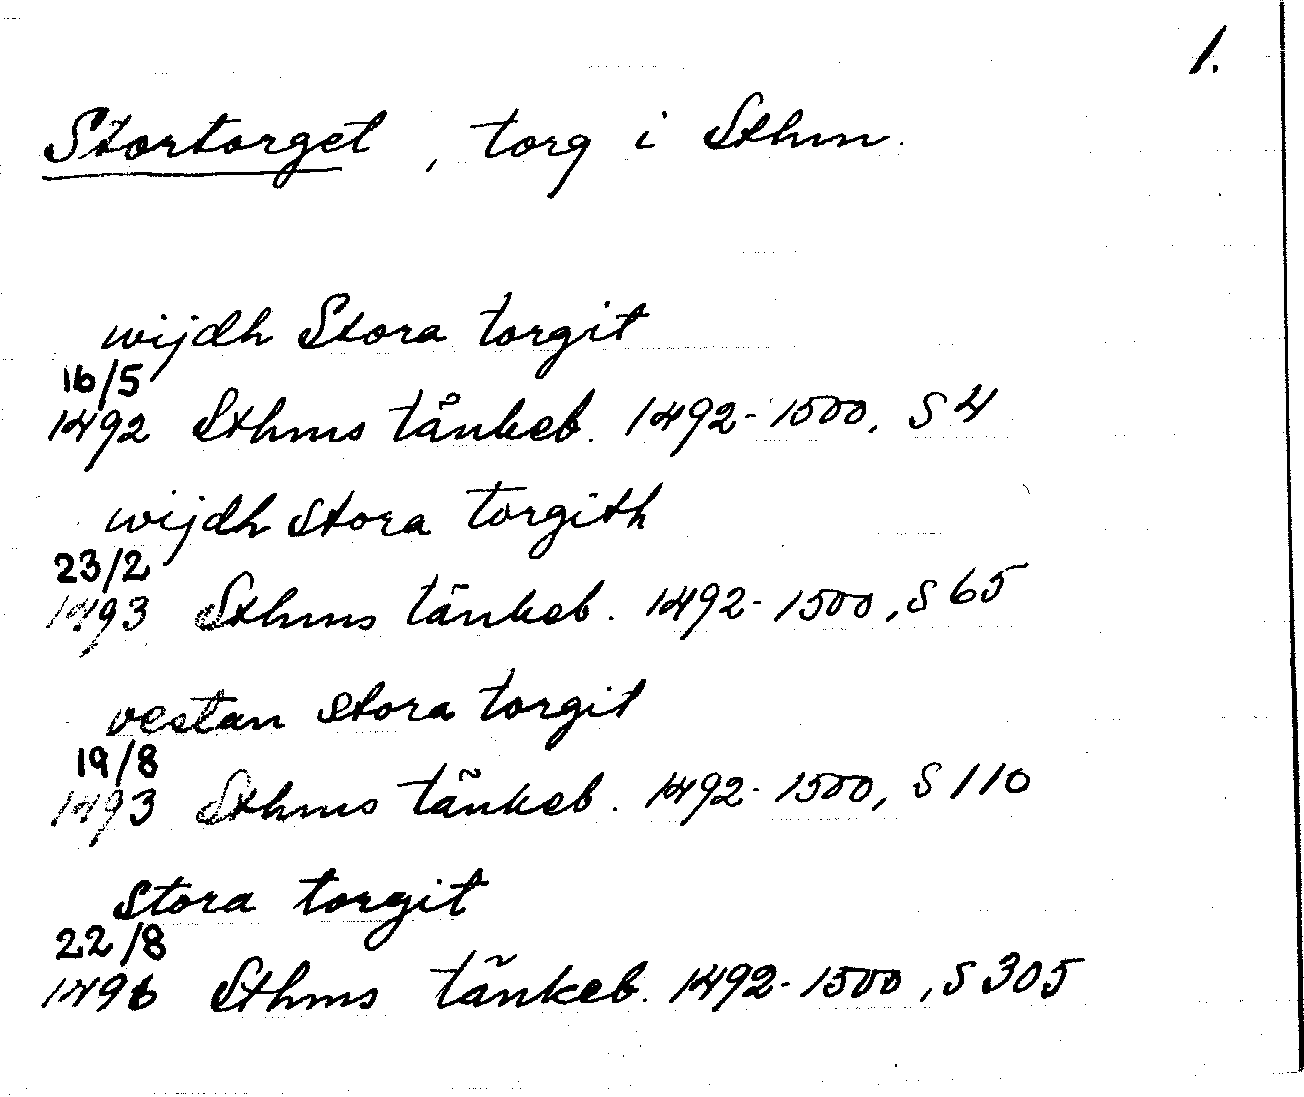 1.
Stortorget, torg i Sthm.
wijdh Stora torgit
16/5
1492 Sthms tånkeb. 1492-1500, S 4
wijdh Stora torgith
23/2
1493 Sthms tänkeb. 1492-1500, S 65
vestan Stora torgit
19/8
1493 Sthms tänkeb. 1492-1500, S 110
Stora torgit
22/8
1496 Sthms tänkeb. 1492-1500, S 305